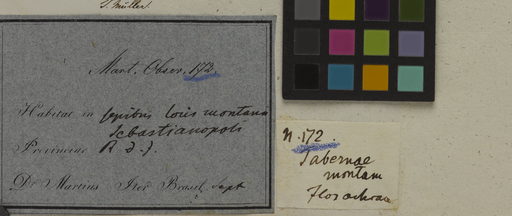 J. Müller.
Mart. Obser. 172
Habitat in sepibus locis montanis
Sebastianopoli
Provinciae R. d. J.
Dr. Martius Iter Brasil. Sept
N. 172.
Tabernae
montana
flos ochrac